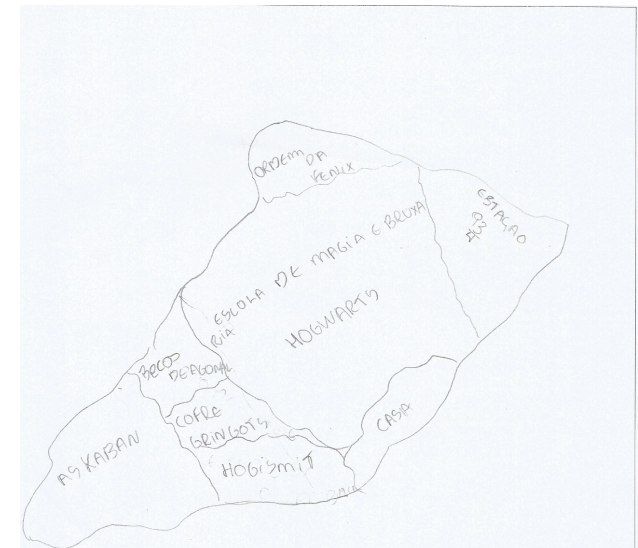 ORDEM
DA
FENIX
ESTAÇÃO
ESCOLA DE MAGIA E BRUXA
RIA
HOGWARTS
BECO
DEAGONAL
COFRE
GRINGOTS
CASA
ASKABAN
HOGISMIT